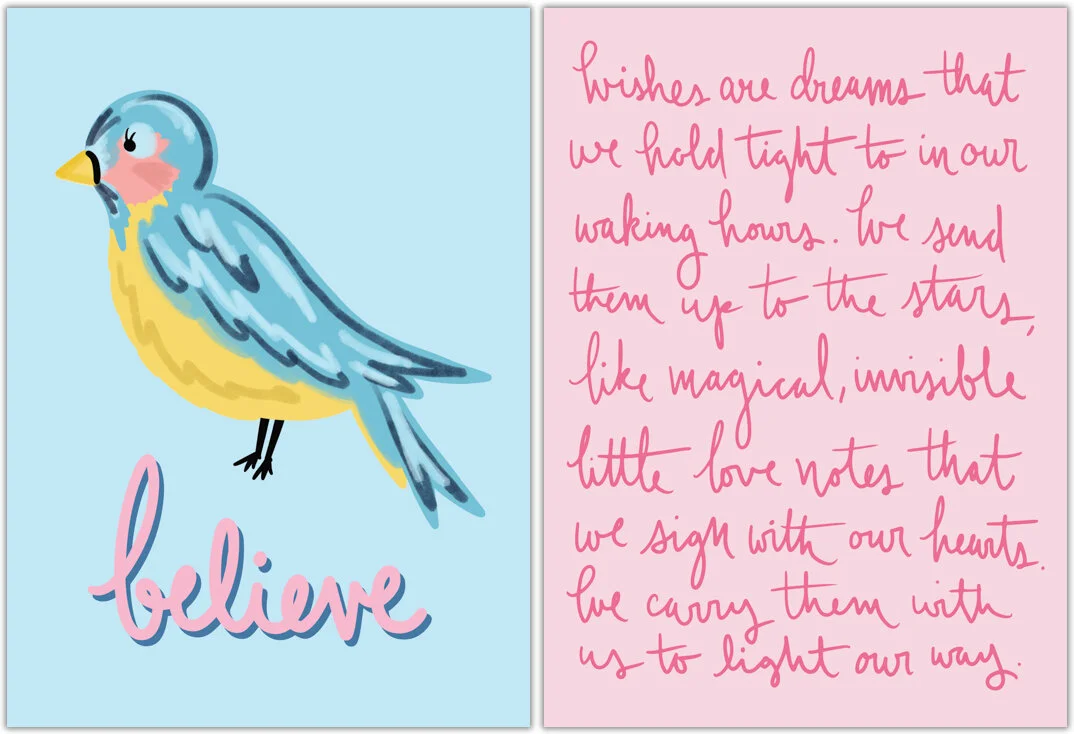 believe
Wishes are dreams that
we hold tight to in our
waking hours. We send
them up to the stars,
like magical, invisible
little love notes that
we sign with our hearts.
We carry them with
us to light our way.